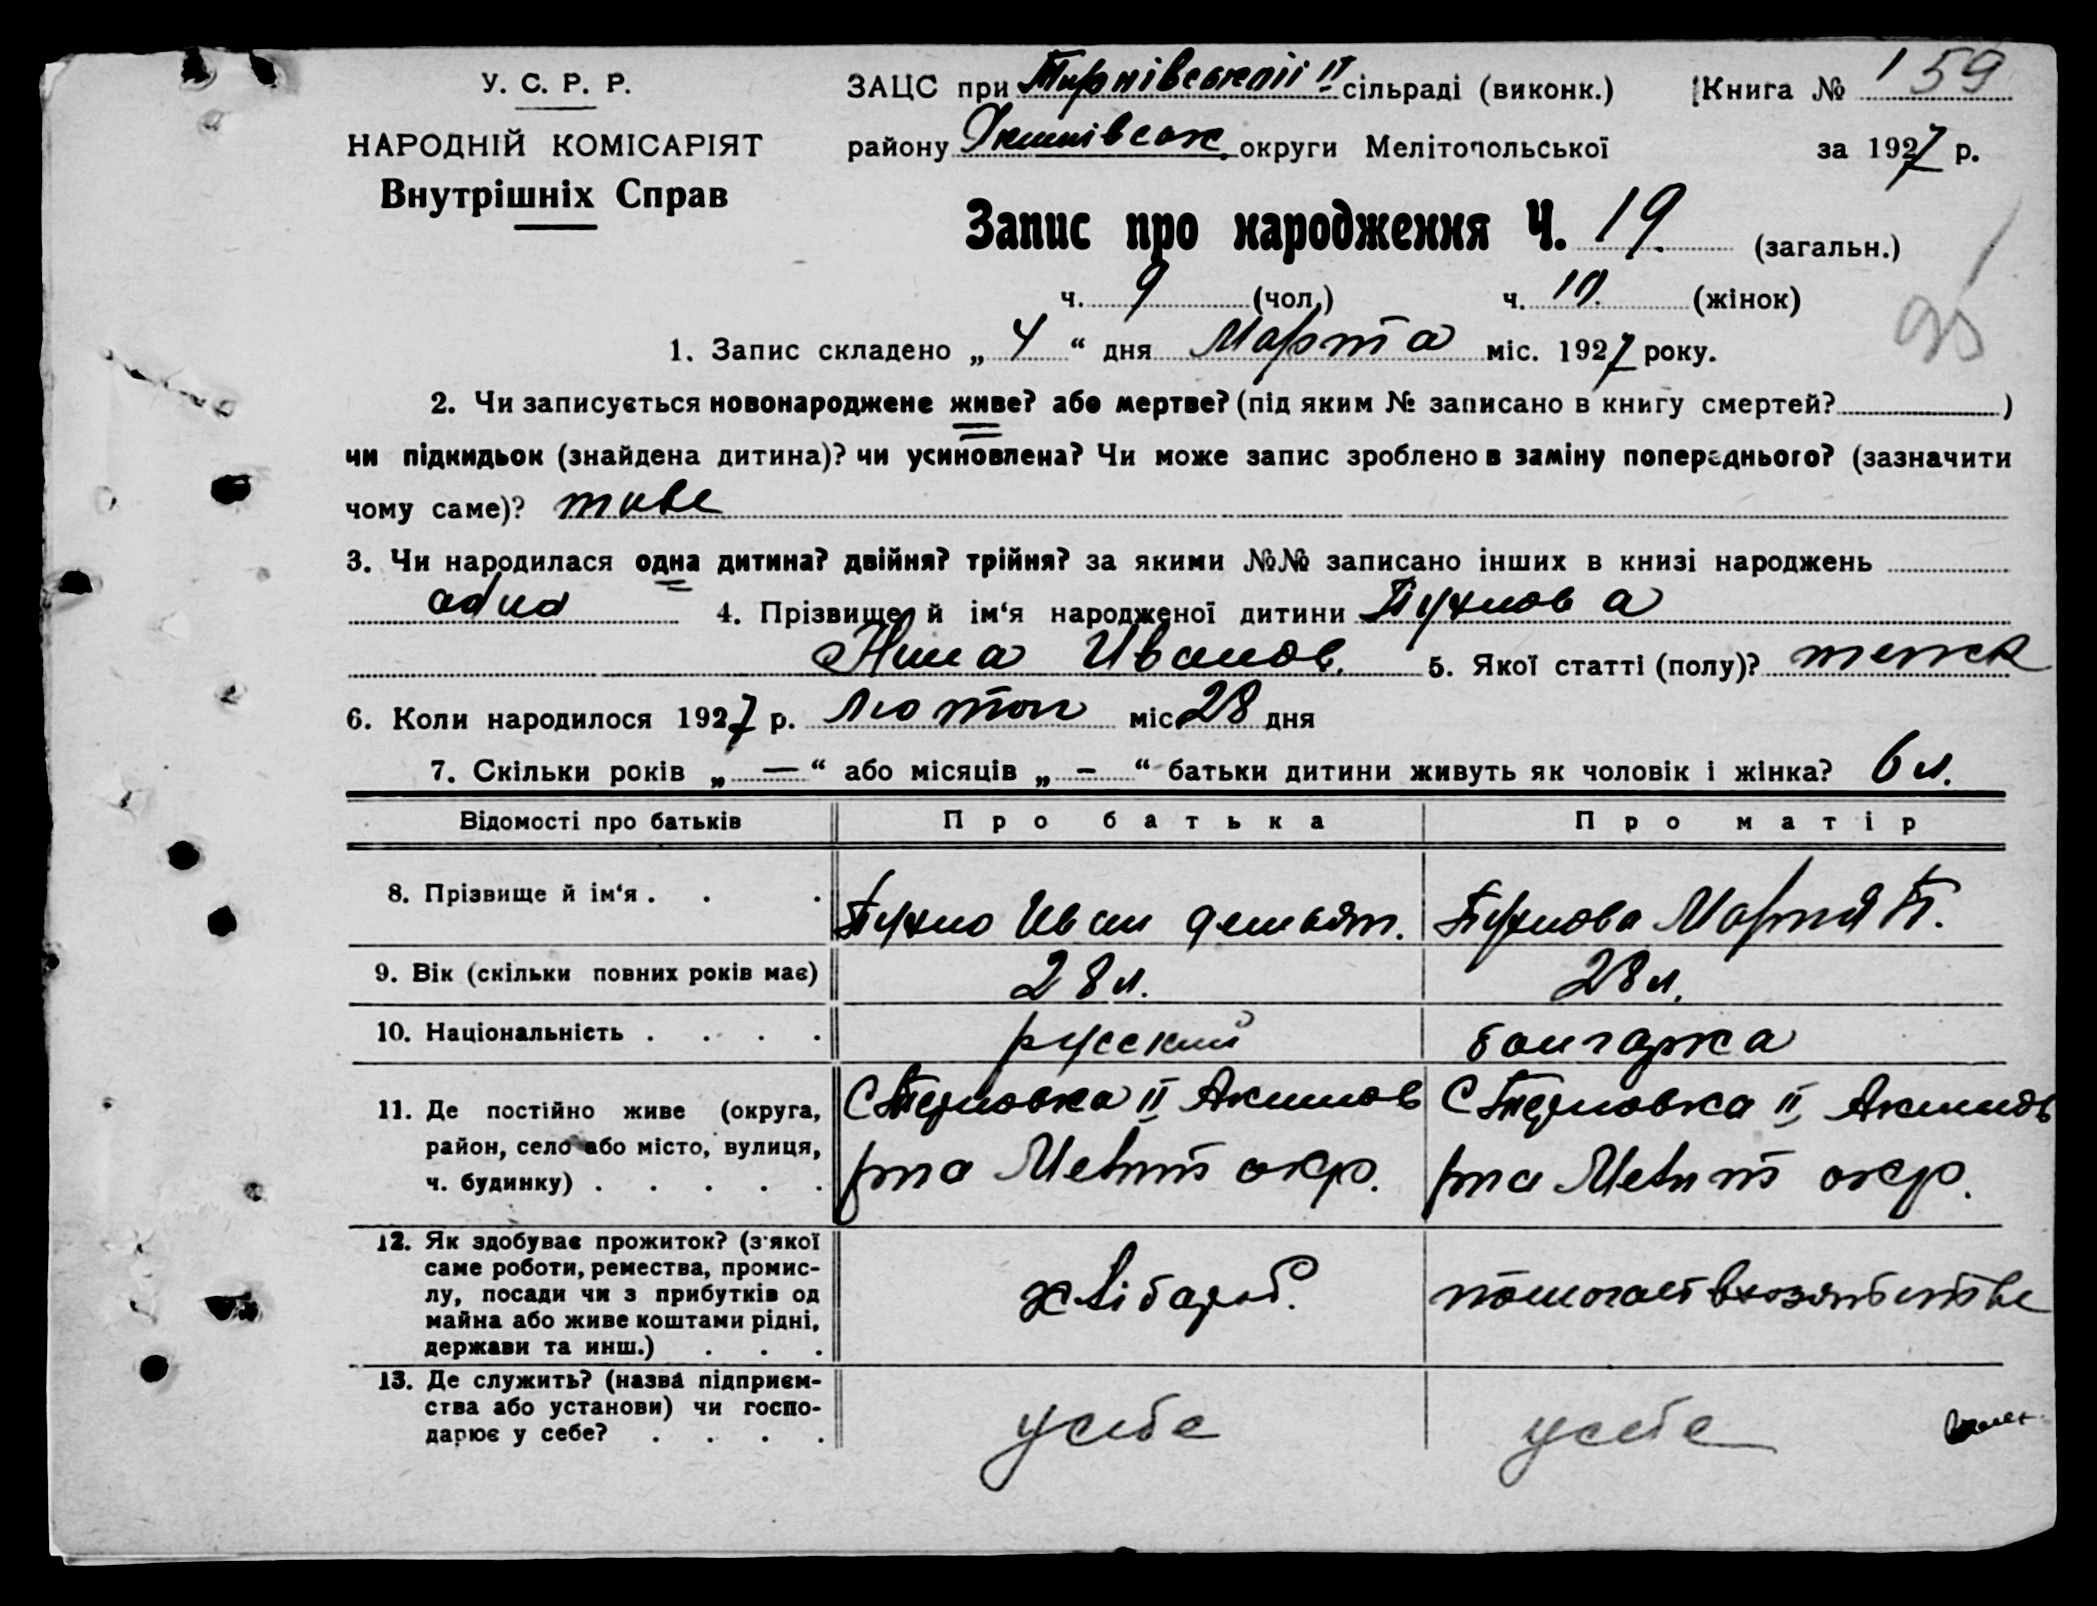 У. С. Р. Р.
НАРОДНІЙ КОМІСАРІЯТ
Внутрішніх Справ
ЗАЦС при Тирнівській II сільраді (виконк.) Книга № 1 59
району Якимівськ. округи Мелітопольської за 1927 р.
Запис про народження Ч. 19. (загальн.)
ч. 9 (чол.) ч. 10. (жінок)
1. Запис складено „ 4 “ дня Марта міс. 1927 року.
2. Чи записується новонароджене живе? або мертве? (під яким № записано в книгу смертей? )
чи підкидьок (знайдена дитина)? чи усиновлена? Чи може запис зроблено в заміну попереднього? (зазначити
чому саме)? живе
3. Чи народилася одна дитина? двійня? трійня? за якими №№ записано інших в книзі народжень
одна 4. Прізвище й ім‘я народженої дитини Пухнова
Нина Иванов. 5. Якої статті (полу)? женск
6. Коли народилося 1927 р. лютого міс 28 дня
7. Скільки років „ — “ або місяців „ – “ батьки дитини живуть як чоловік і жінка? 6 л.
Відомості про батьків Про батька Про матір
8. Прізвище й ім‘я . . . Пухно Иван Демьят. Пухнова Мария П.
9. Вік (скільки повних років має) 28 л. 28 л.
10. Національність . . . . русский болгарка
11. Де постійно живе (округа, С Терновка II Акимов С Терновка II, Акимов
район, село або місто, вулиця, р-на Мелит окр. р-на Мелит окр.
ч. будинку) . . . . .
12. Як здобуває прожиток? (з'якої
саме роботи, ремества, промис-
лу, посади чи з прибутків од хлібороб. помогает в хозяйстве
майна або живе коштами рідні,
держави та инш.) . . .
13. Де служить? (назва підприєм-
ства або установи) чи госпо- у себе у себе
дарює у себе? . . . .